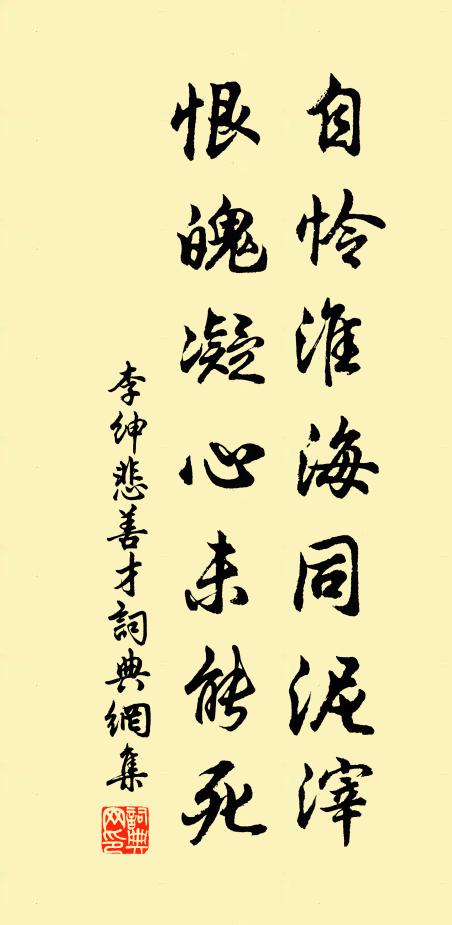 自怜淮海同泥滓
恨魄凝心未能死
李紳悲善才詞典網集
詞典网印